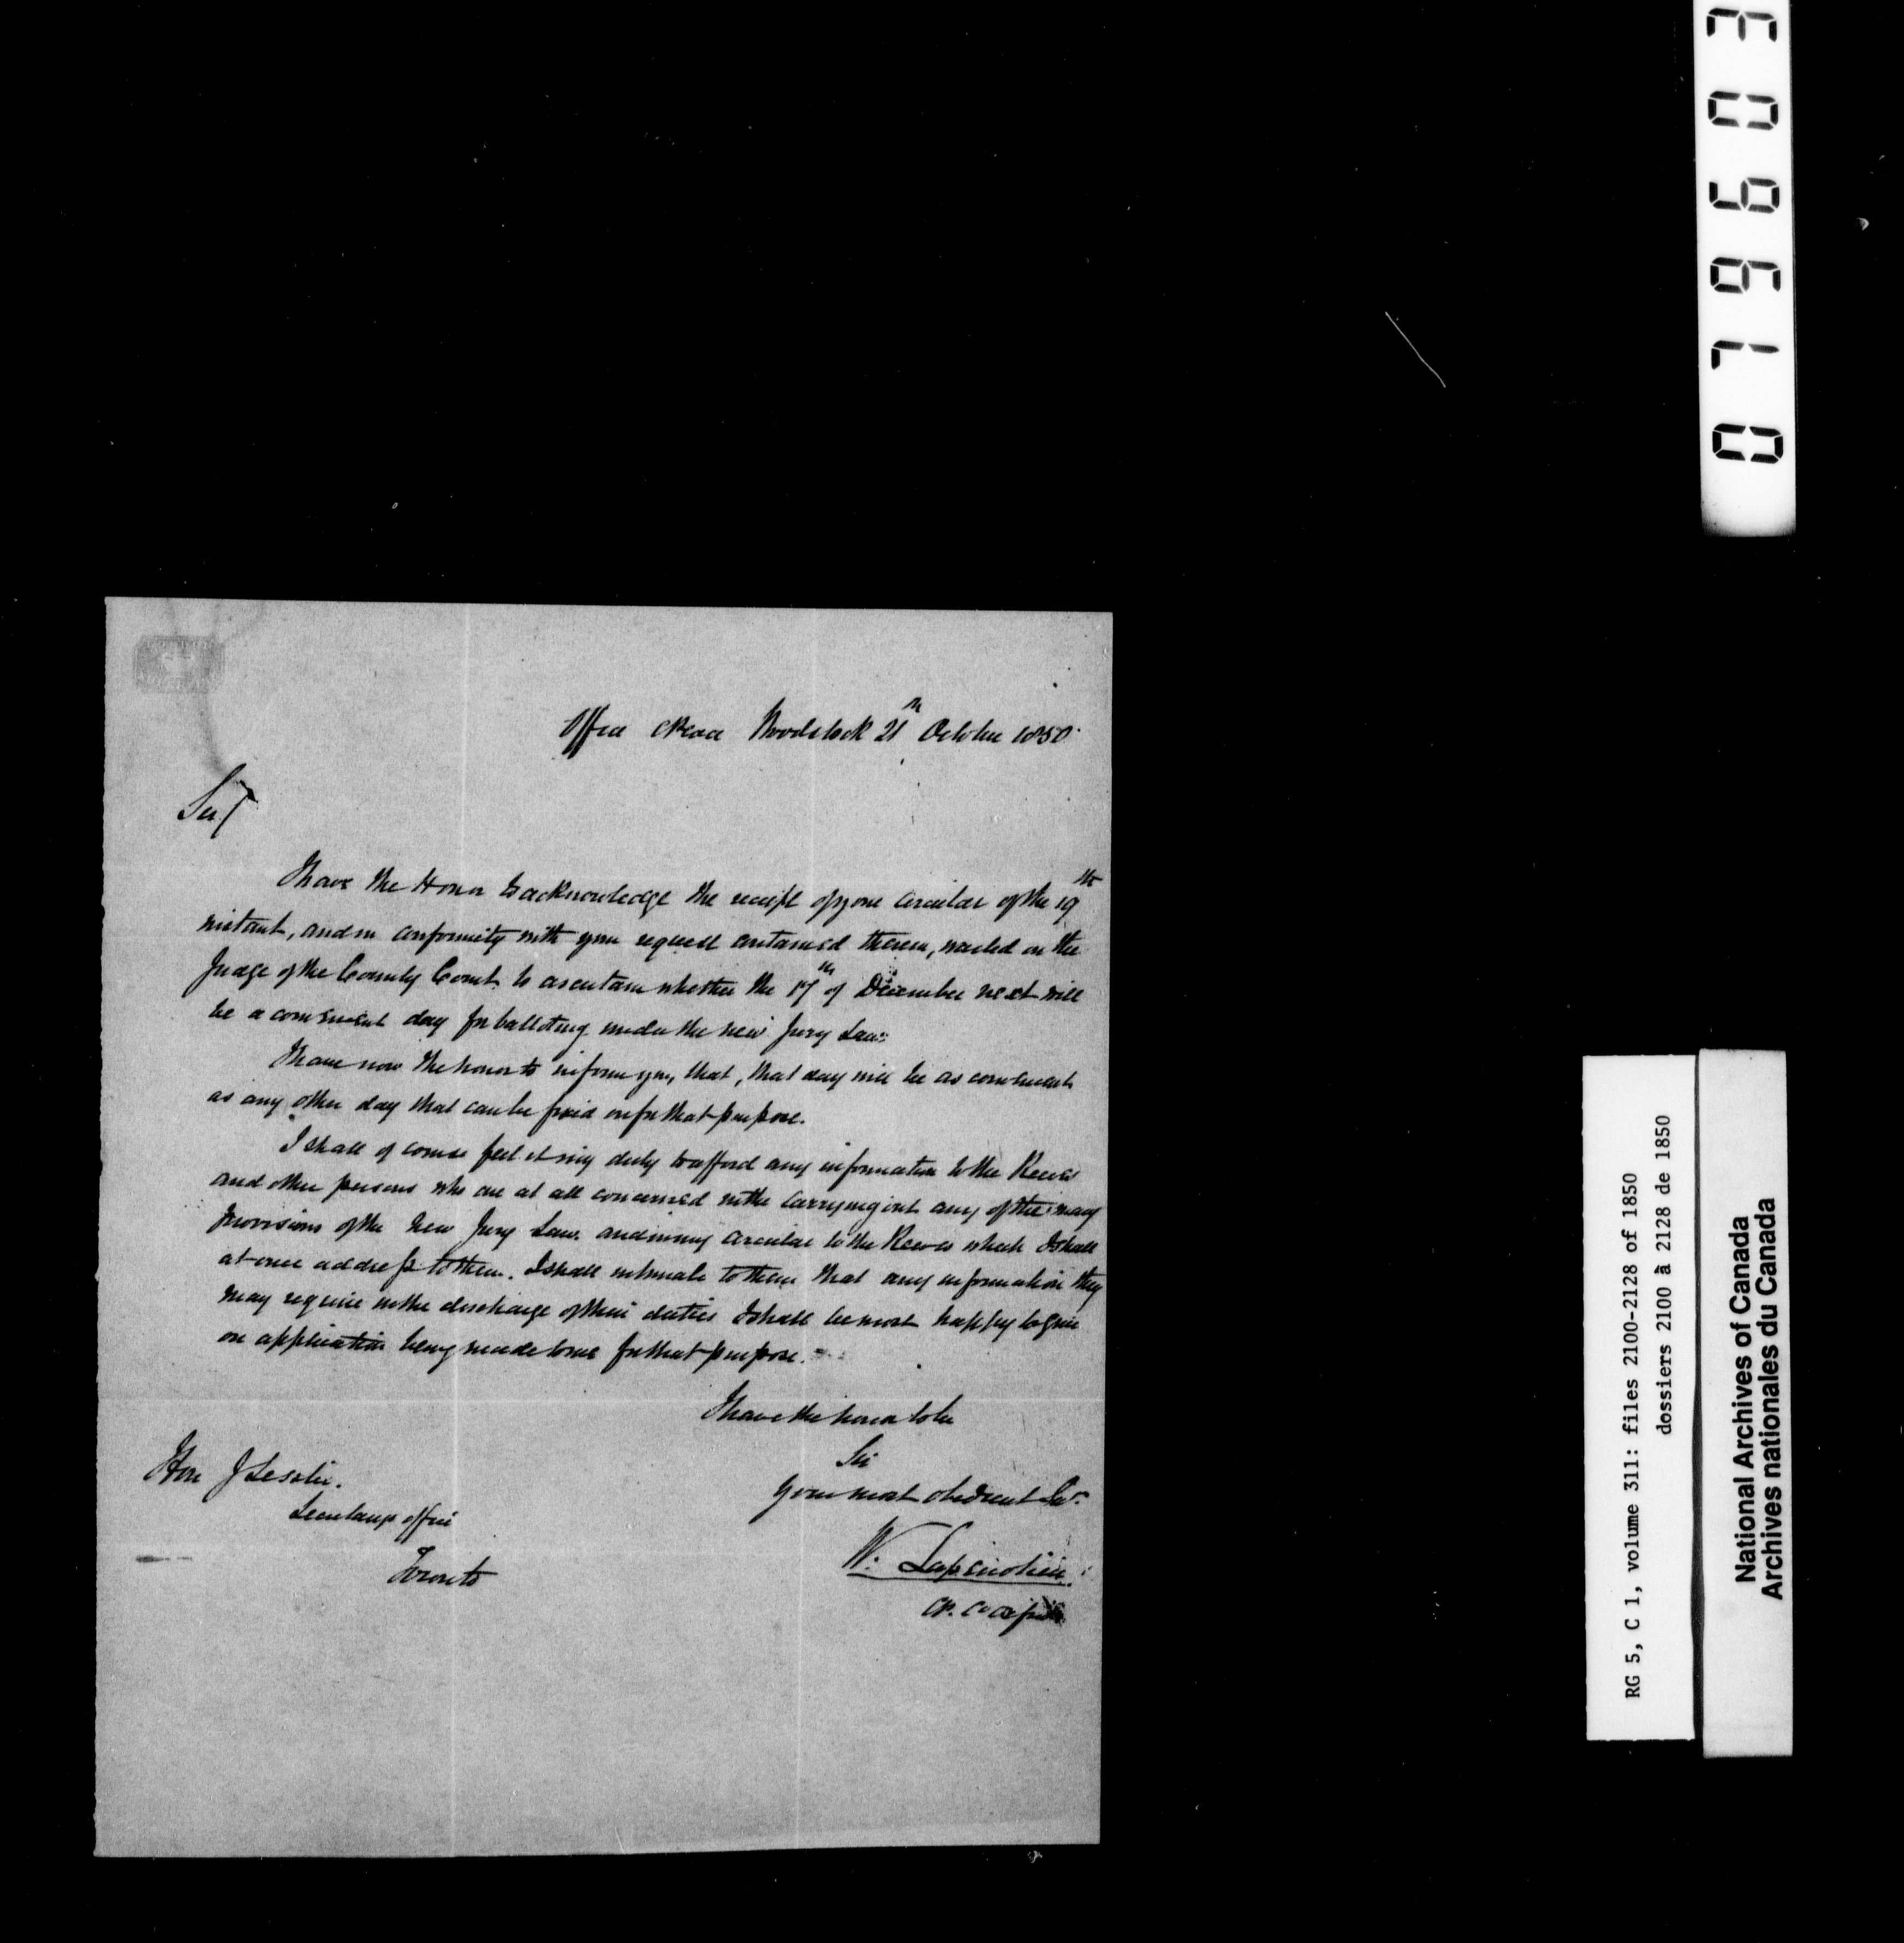 Office Peace Woodstock 21st October 1850.
Sir,
I have the Honor to acknowledge the receipt of your Circular of the 19th
instant, and in conformity with your request contained therein, waited on the
Judge of the County Court to ascertain whether the 17th of December next will
be a convenient day for balloting under the new Jury Law.
I have now the honor to inform you, that, that day will be as convenient
as any other day that can be fixed on for that purpose.
I shall of course feel it my duty to afford any information to the Reeves
and other persons who are at all concerned in the carrying out any of the many
provisions of the New Jury Law, and in my Circular to the Reeves which I shall
at once address to them. I shall intimate to them that any information they
may require in the discharge of their duties I shall be most happy to give
on application being made to me for that purpose.
I have the honor to be
Sir
Your most obedient Svt
W. Lapenotiere
CP. Co
Hon J Leslie.
Secretarys office
Toronto
079603
RG 5, C 1, volume 311: files 2100-2128 of 1850
dossiers 2100 à 2128 de 1850
National Archives of Canada
Archives nationales du Canada